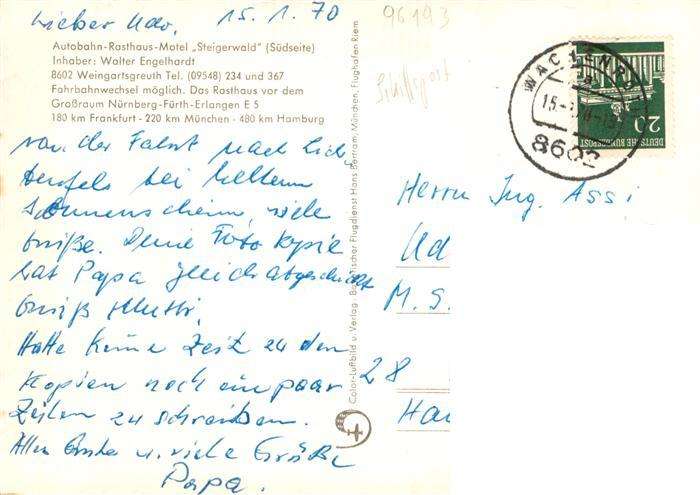 Lieber Udo. 15.1.70
Autobahn-Rasthaus-Motel „Steigerwald" (Südseite)
Inhaber: Walter Engelhardt
8602 Weingartsgreuth Tel. (09548) 234 und 367
Fahrbahnwechsel möglich. Das Rasthaus vor dem
Großraum Nürnberg-Fürth-Erlangen E 5
180 km Frankfurt - 220 km München - 480 km Hamburg
von der Fahrt nach
bei
Sonnenschein, viele
Grüße. Deine Fotokopie
hat Papa gleich abgeschickt
Gruß Mutti.
Hatte keine Zeit zu den
Kopien noch ein paar
Zeilen zu schreiben.
Alles Gute u. viele Grüße
Papa.
Color-Luftbild u. Verlag: Bayerischer Flugdienst Hans Bertram, München, Flughafen Riem
96193
WACHENR
15.-
8602
20
DEUTSCHE BUNDESPOST
Herrn Ing. Assi
Ud
M.S.
28
Ha